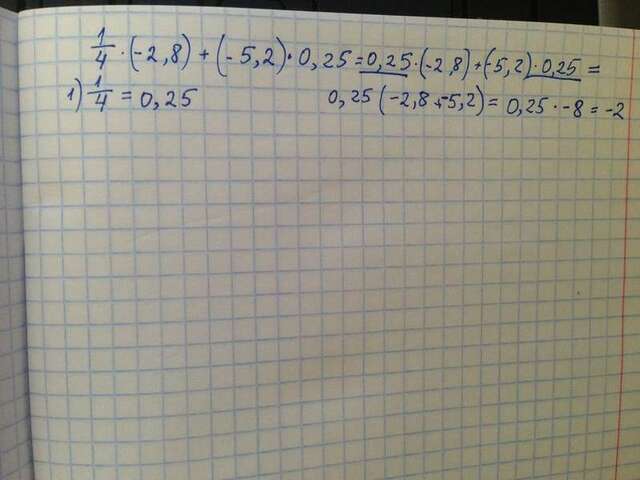 1/4 · (-2,8) + (-5,2) · 0,25 = 0,25 · (-2,8) + (-5,2) · 0,25 =
1) 1/4 = 0,25
0,25 (-2,8 + -5,2) = 0,25 · -8 = -2